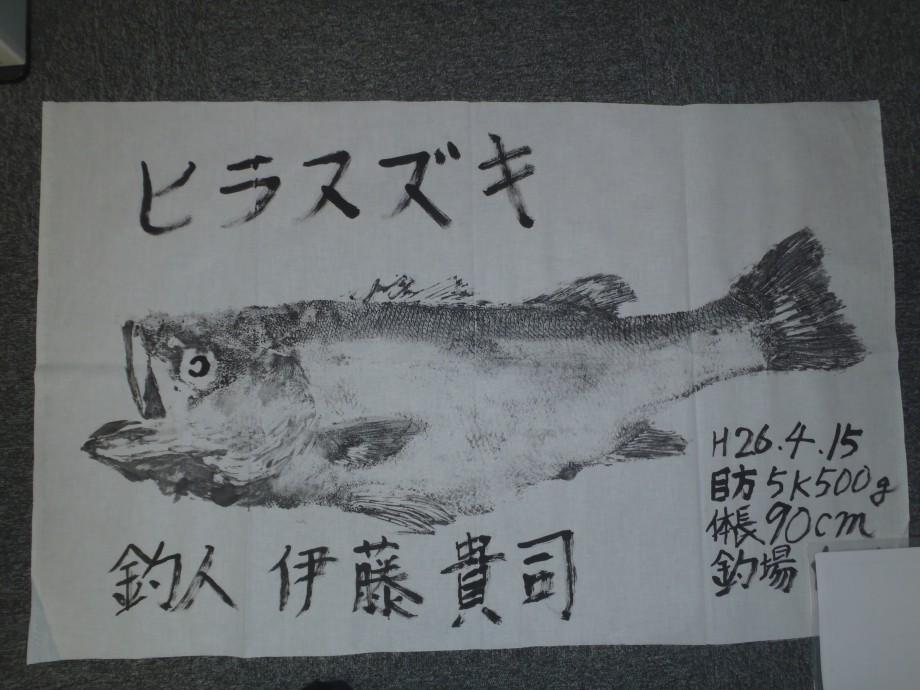 ヒラスズキ
H26.4.15
目方 5K500g
体長 90cm
釣場
釣人 伊藤貴司